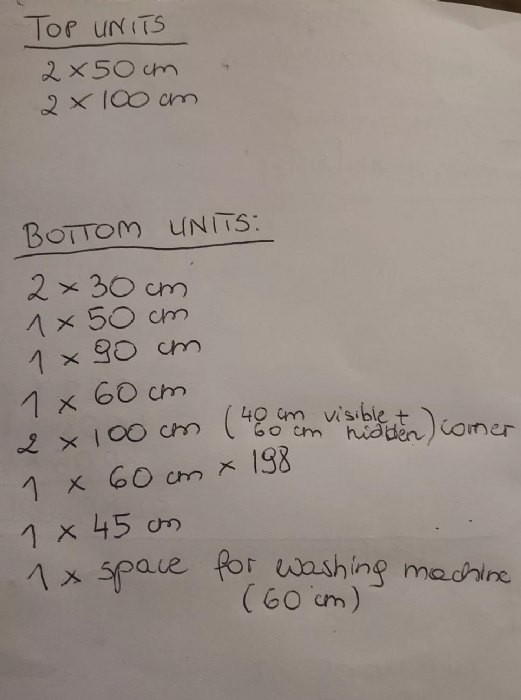 TOP UNITS
2 × 50 cm
2 × 100 cm
BOTTOM UNITS:
2 × 30 cm
1 × 50 cm
1 × 90 cm
1 × 60 cm
2 × 100 cm (40 cm visible + 60 cm hidden) corner
1 × 60 cm × 198
1 × 45 cm
1 × space for washing machine
(60 cm)